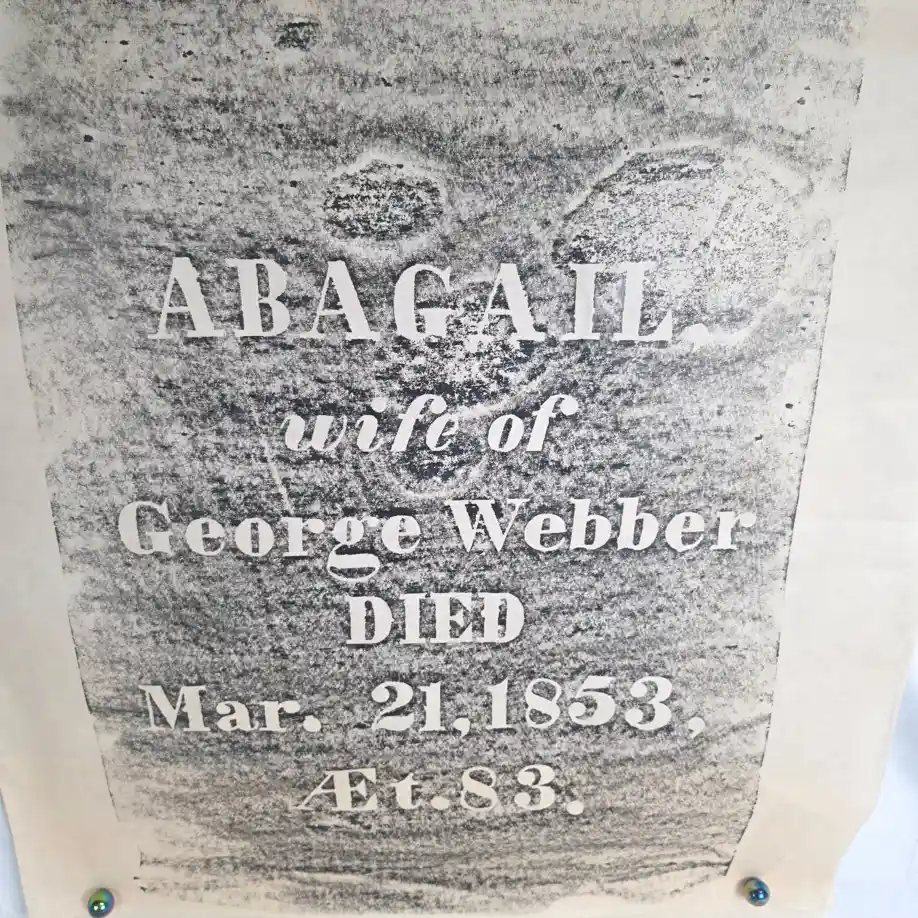 ABAGAIL.
wife of
George Webber
DIED
Mar. 21, 1853,
Æt. 83.